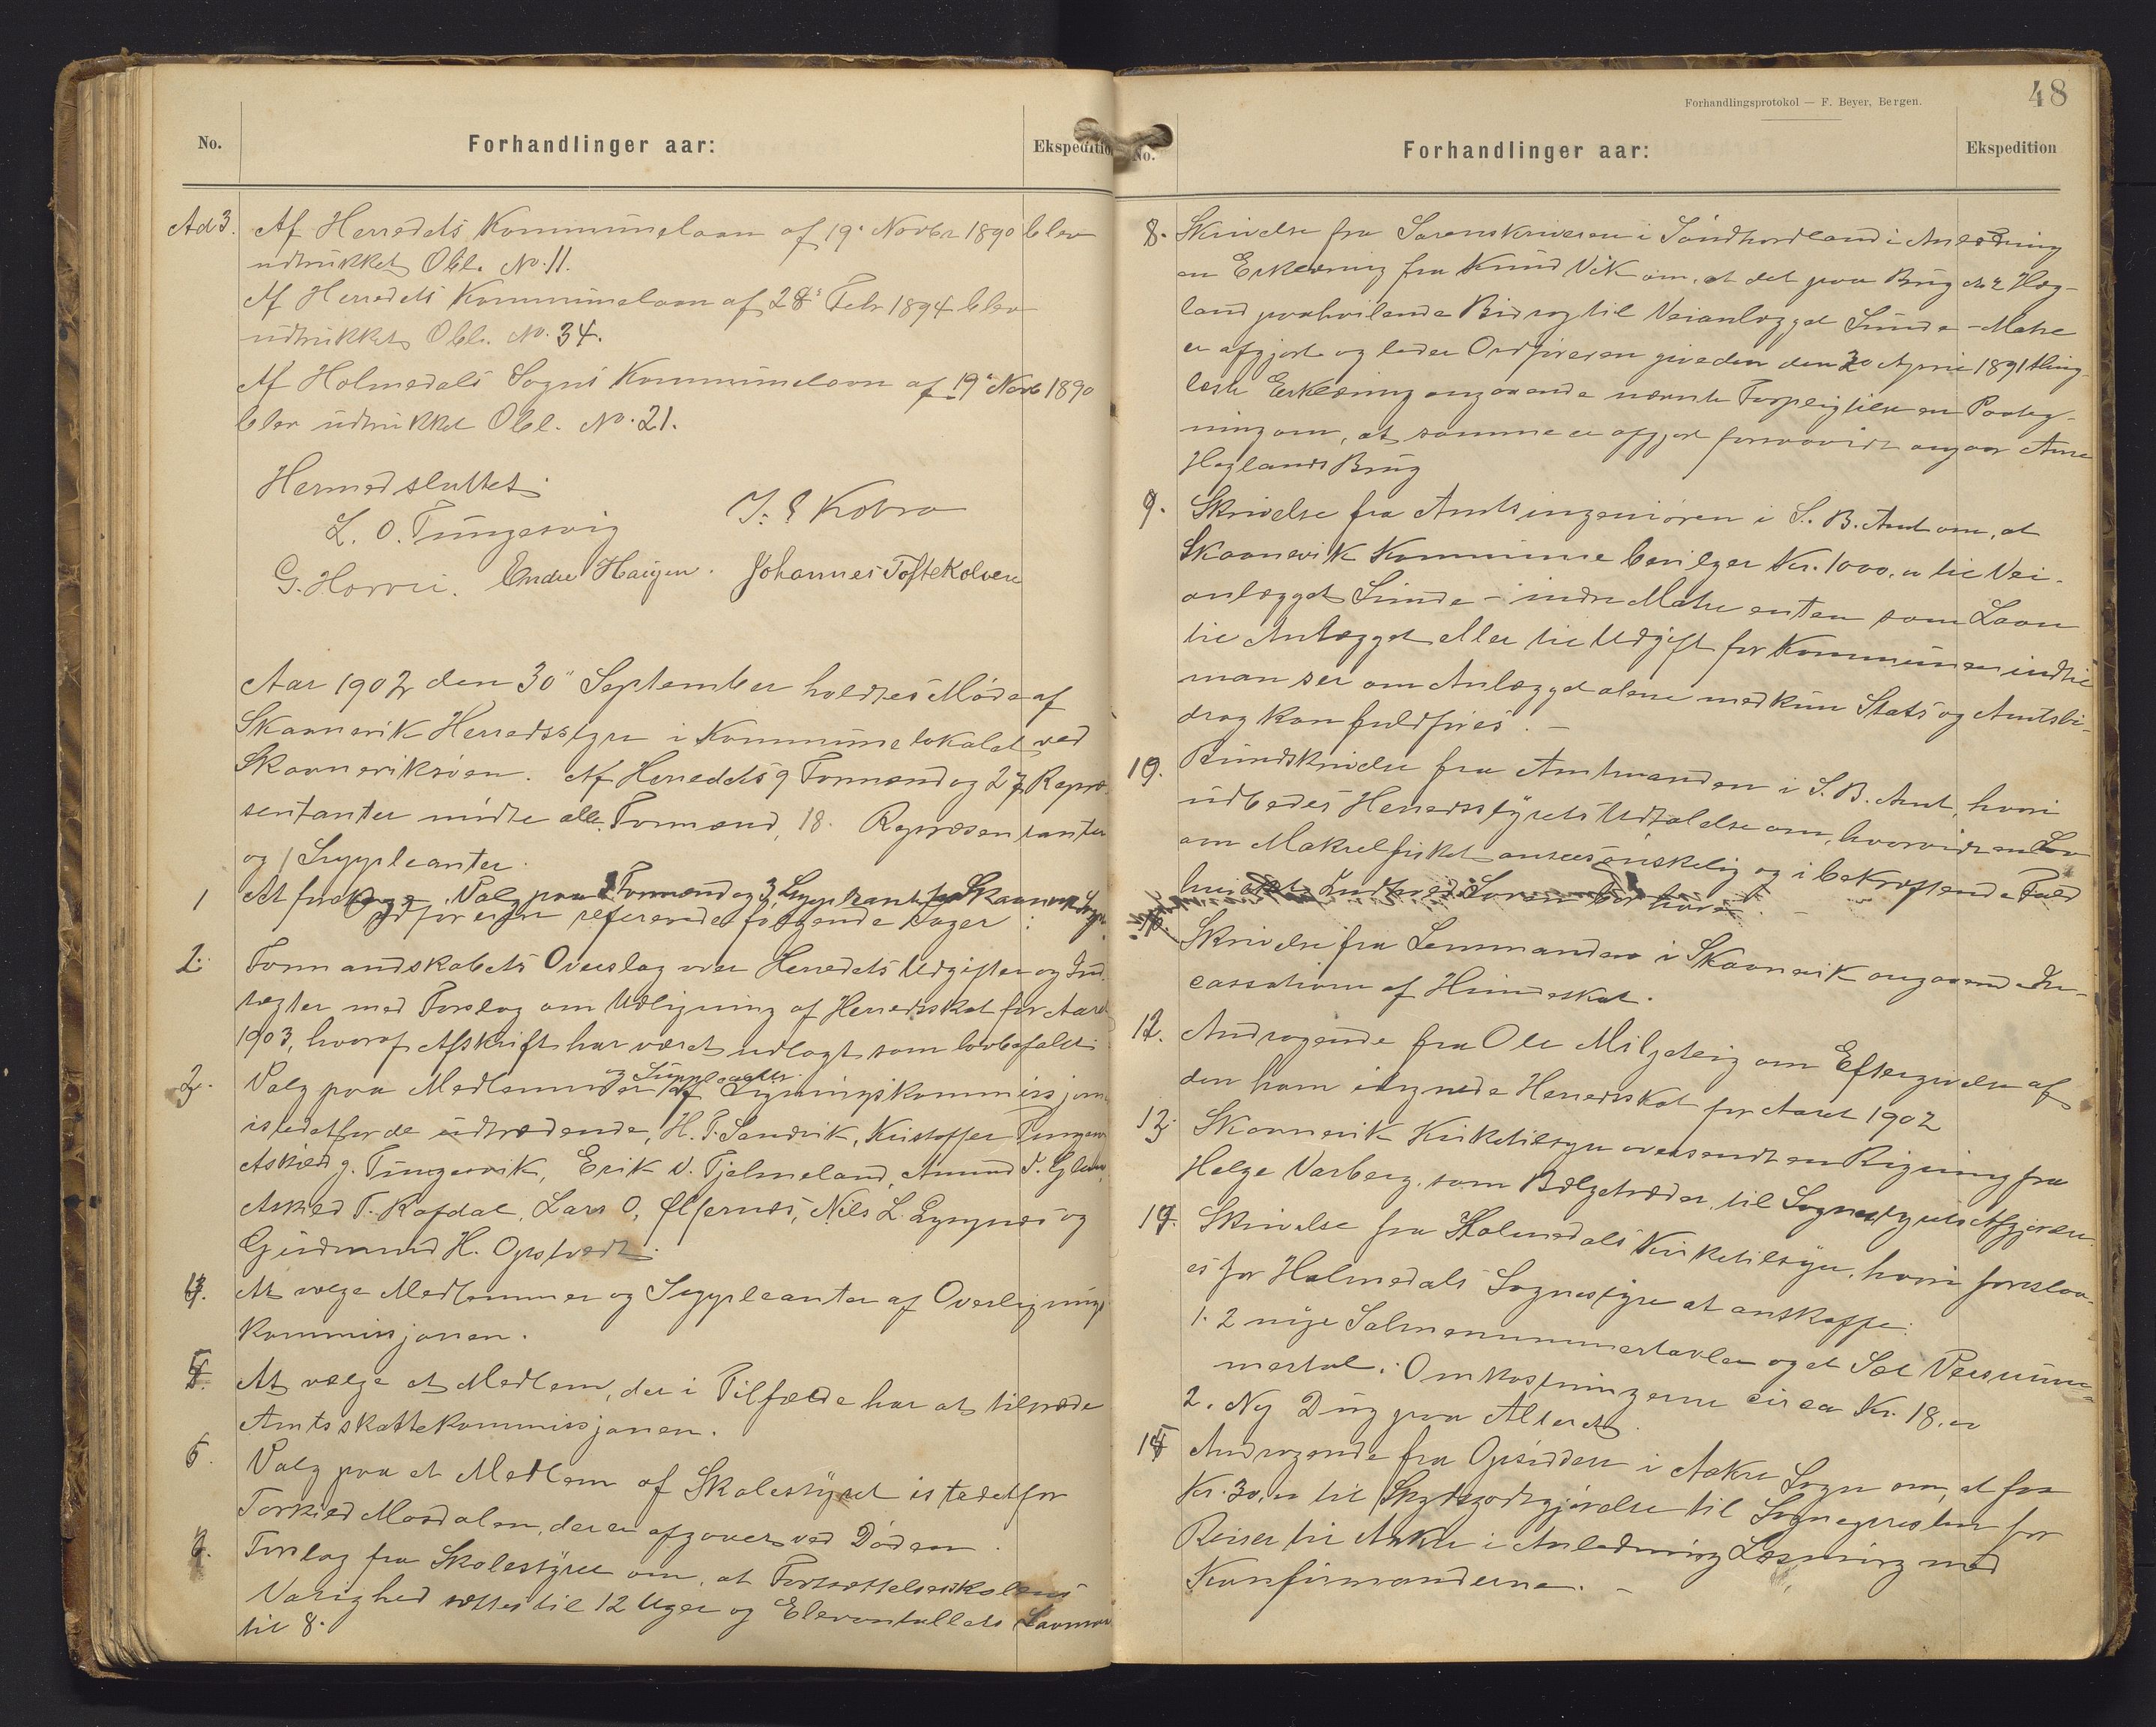 No.
Forhandlinger aar:
Ekspedition
Ad 3. Af Herredets Kommunelaan af 19. Novbr 1890 blev
udtrukket Obl. No. 11.
Af Herredets Kommunelaan af 28s Febr 1894 blev
udtrukket Obl. No. 34.
Af Holmedals Sogns Kommunelaan af 19s Novb 1890
blev udtrukket Obl. No. 21.
Hermed sluttet.
L. O. Tungesvig
G. Horvei. Endre Haugen. Johannes Toftekalven
Aar 1902 den 30" September holdtes Møde af
Skaanevik Herredsstyre i Kommunelokalet ved
Skaaneviksøen. Af Herredets 9 Formænd og 27 Repræ-
sentanter mødte alle Formænd, 18 Repræsentanter
og 1 Suppleanter.
1 At foretage Valg paa Formænd og 3 Suppleant for Skaanevik Sogn
Ordføreren refererede følgende Sager:
2. Formandskabets Overslag over Herredets Udgifter og Ind-
tægter med Forslag om Udligning af Herredsskat for Aaret
1903, hvoraf Afskrift har været udlagt som lovbefalet.
3. Valg paa Medlemmer og Suppleanter af Ligningskommissjonen
istedetfor de udtrædende, H. T. Sandvik, Kristoffer Tungesvik
Askild G. Tungesvik, Erik N. Fjelmeland, Amund T.
Askild T. Rafdal, Lars O. Ølfernes, Nils L. Lyngnes og
Gudmund H. Opstvedt.
4. At vælge Medlemmer og Suppleanter af Overlignings
kommissjonen.
5. At vælge et Medlem, der i Tilfælde har at tiltræde
Amtsskattekommissjonen.
6. Valg paa et Medlem af Skolestyret istedetfor
Torkild Mosdalen, der er afgaaet ved Døden.
7. Forslag fra Skolestyret om, at Fortsættelsesskolens
Varighed sættes til 12 Uger og Elevantallets
til 8.
48
Forhandlingsprotokol — F. Beyer, Bergen.
No.
Forhandlinger aar:
Ekspedition
8. Skrivelse fra Sorenskriveren i Søndhordland i Anledning
en Erklæring fra Knud Vik om, at det paa Brug No 2 Høg-
land paahvilende Bidrag til Veianlægget Sunde - Matre
er afgjort og lader Ordføreren give den den 30 April 1891 thing-
læste Erklæring angaaende nævnte Forpligtelse en Paateg-
ning om, at samme er afgjort forsaavidt angaar Arne
Høglands Brug
9. Skrivelse fra Amtsingeniøren i S. B. Amt om, at
Skaanevik Kommune bevilger Kr. 1000.00 til Vei-
anlægget Sunde - indre Matre enten som Laan
til Anlægget eller til Udgift for Kommunen indtil
man ser om Anlægget alene med kun Stats og Amtsbi-
drag kan fuldføres. -
10. Rundskrivelse fra Amtmanden i S. B. Amt, hvori
udbedes Herredsstyrets Udtalelse om, hvorvidt en Lov
om Makrelfisket ansees ønskelig og i bekræftende Fald
hvilket Indhold Loven bør have. -
Skrivelse fra Lensmanden i Skaanevik angaaende In-
cassation af Hundeskat.
12. Andragende fra Ole Miljeteig om Eftergivelse af
den ham ilignede Herredsskat for Aaret 1902
13. Skaanevik Kirketilsyn oversendt en Rigning fra
Helge Varberg, som Bælgetræder, til Sognestyrets Afgjørelse.
14. Skrivelse fra Holmedals Kirketilsyn, hvori foreslaa-
es for Holmedals Sognestyre at anskaffe:
1. 2 nye Salmenummertavler og et Sæt Versnum-
mertal. Omkostningerne circa Kr. 18.00
2. Ny Dug paa Alteret.
15 Andragende fra Opsiddere i Aakre Sogn om, at faa
Kr. 30.00 til Skydsgodtgjørelse til Sognepresten for
Reiser til Aakre i Anledning Læsning med
Konfirmanderne. -